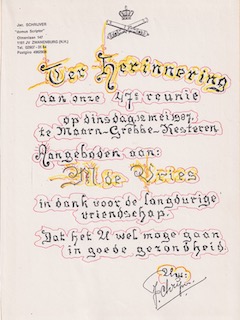 Jac. SCHRIJVER
"Armor Scripter"
Dennenlaan 147
1161 JV ZWANENBURG (N.H.)
Tel. 02907 -
Postgiro
Ter Herinnering
aan onze 47e reunie
op dinsdag 12 mei 1987.
te Maarn-Grebbe-Kesteren
Aangeboden aan:
M de Vries
in dank voor de langdurige
vriendschap.
Dat het U wel moge gaan
in goede gezondheid
Uw: